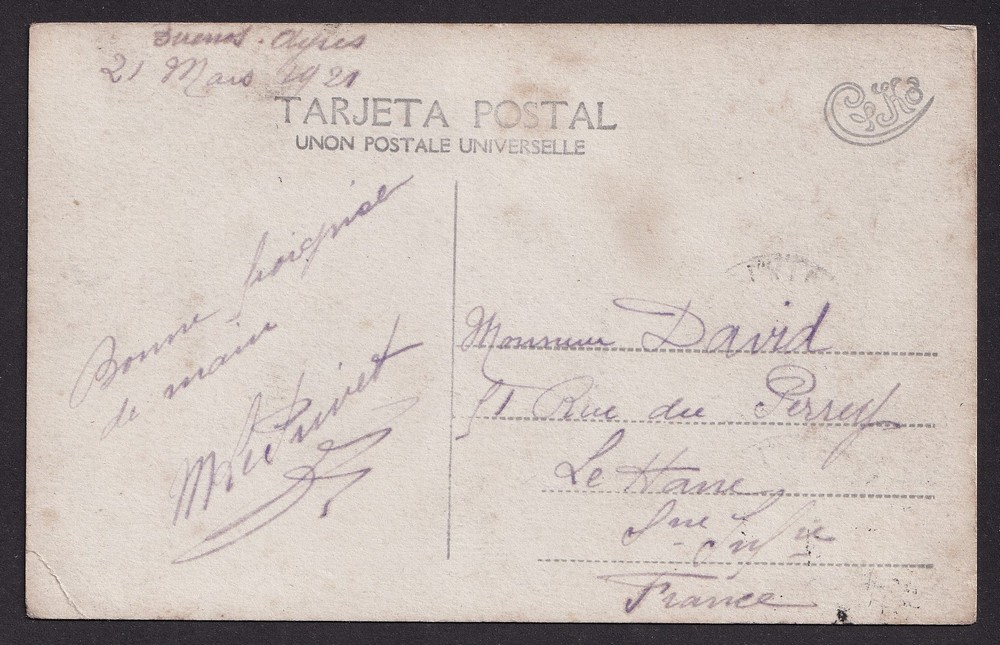 Buenos-Ayres
21 Mars 1921
TARJETA POSTAL
UNON POSTALE UNIVERSELLE
Bonne poignée
de main
Monsieur David
51 Rue du Perrey
Le Havre
Sne Infre
France